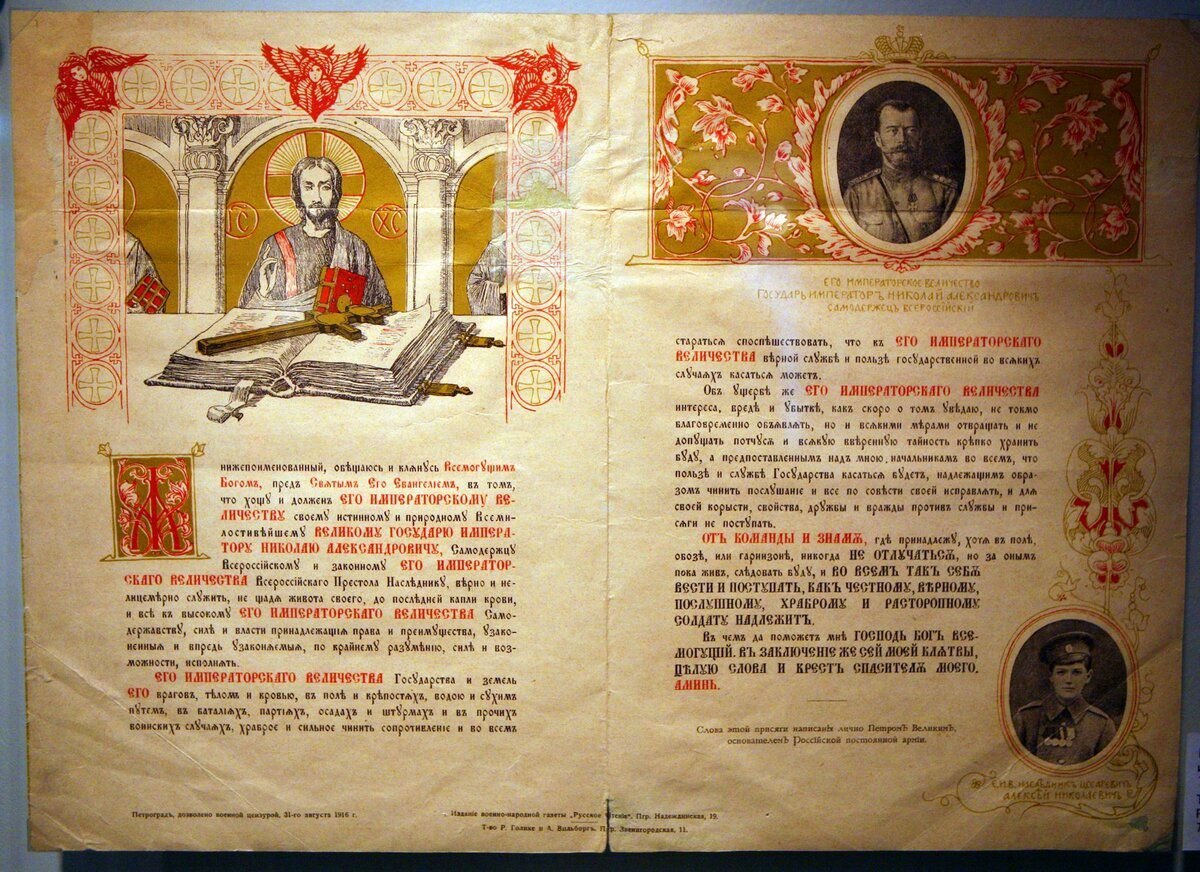 IC
XC
Я
нижепоименованный, обѣщаюсь и клянусь Всемогущимъ
Богомъ, предъ Святымъ Его Евангелiемъ, въ томъ,
что хощу и долженъ ЕГО ИМПЕРАТОРСКОМУ ВЕ-
ЛИЧЕСТВУ своему истинному и природному Всеми-
лостивѣйшему ВЕЛИКОМУ ГОСУДАРЮ ИМПЕРА-
ТОРУ НИКОЛАЮ АЛЕКСАНДРОВИЧУ, Самодержцу
Всероссiйскому и законному ЕГО ИМПЕРАТОР-
СКАГО ВЕЛИЧЕСТВА Всероссiйскаго Престола Наслѣднику, вѣрно и не-
лицемѣрно служить, не щадя живота своего, до послѣдней капли крови,
и всѣ къ высокому ЕГО ИМПЕРАТОРСКАГО ВЕЛИЧЕСТВА Само-
державству, силѣ и власти принадлежащiя права и преимущества, узако-
ненныя и впредь узаконяемыя, по крайнему разумѣнiю, силѣ и воз-
можности, исполнять.
ЕГО ИМПЕРАТОРСКАГО ВЕЛИЧЕСТВА Государства и земель
ЕГО враговъ, тѣломъ и кровью, въ полѣ и крѣпостяхъ, водою и сухимъ
путемъ, въ баталiяхъ, партiяхъ, осадахъ и штурмахъ и въ прочихъ
воинскихъ случаяхъ, храброе и сильное чинить сопротивленiе и во всемъ
Петроградъ, дозволено военной цензурой, 31-го августа 1916 г.
Изданiе военно-народной газеты „Русское Чтенiе“. Пгр. Надеждинская, 19.
Т-во Р. Голике и А. Вильборгъ. Пгр. Звенигородская, 11.
ЕГО ИМПЕРАТОРСКОЕ ВЕЛИЧЕСТВО
ГОСУДАРЬ ИМПЕРАТОРЪ НИКОЛАЙ АЛЕКСАНДРОВИЧЪ
САМОДЕРЖЕЦЪ ВСЕРОССIЙСКIЙ
стараться споспѣшествовать, что къ ЕГО ИМПЕРАТОРСКАГО
ВЕЛИЧЕСТВА вѣрной службѣ и пользѣ государственной во всякихъ
случаяхъ касаться можетъ.
Объ ущербѣ же ЕГО ИМПЕРАТОРСКАГО ВЕЛИЧЕСТВА
интереса, вредѣ и убыткѣ, какъ скоро о томъ увѣдаю, не токмо
благовременно объявлять, но и всякими мѣрами отвращать и не
допущать потщуся и всякую ввѣренную тайность крѣпко хранить
буду, а предпоставленнымъ надъ мною начальникамъ во всемъ, что
пользѣ и службѣ Государства касаться будетъ, надлежащимъ обра-
зомъ чинить послушанiе и все по совѣсти своей исправлять, и для
своей корысти, свойства, дружбы и вражды противъ службы и при-
сяги не поступать.
ОТЪ КОМАНДЫ И ЗНАМЯ, гдѣ принадлежу, хотя въ полѣ,
обозѣ, или гарнизонѣ, никогда НЕ ОТЛУЧАТЬСЯ, но за онымъ
пока живъ, слѣдовать буду, и ВО ВСЕМЪ ТАКЪ СЕБЯ
ВЕСТИ И ПОСТУПАТЬ, КАКЪ ЧЕСТНОМУ, ВѢРНОМУ,
ПОСЛУШНОМУ, ХРАБРОМУ И РАСТОРОПНОМУ
СОЛДАТУ НАДЛЕЖИТЪ.
Въ чемъ да поможетъ мнѣ ГОСПОДЬ БОГЪ ВСЕ-
МОГУЩIЙ. ВЪ ЗАКЛЮЧЕНIЕ ЖЕ СЕЙ МОЕЙ КЛЯТВЫ,
ЦѢЛУЮ СЛОВА И КРЕСТЪ СПАСИТЕЛЯ МОЕГО.
АМИНЬ.
Слова этой присяги написанiя лично Петромъ Великимъ,
основателемъ Россiйской постоянной армiи.
Е.И.В. НАСЛѢДНИКЪ ЦЕСАРЕВИЧЪ
АЛЕКСѢЙ НИКОЛАЕВИЧЪ